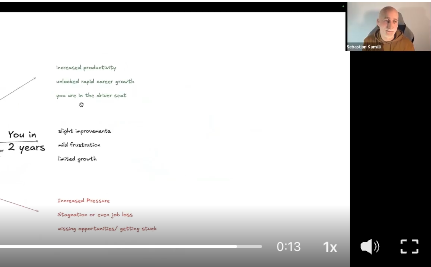 Sebastian Kamilli
increased productivity
unlocked rapid career growth
you are in the driver seat
You in
2 years
slight improvements
mild frustration
limited growth
Increased Pressure
Stagnation or even job loss
missing opportunities/ getting stuck
0:13
1x